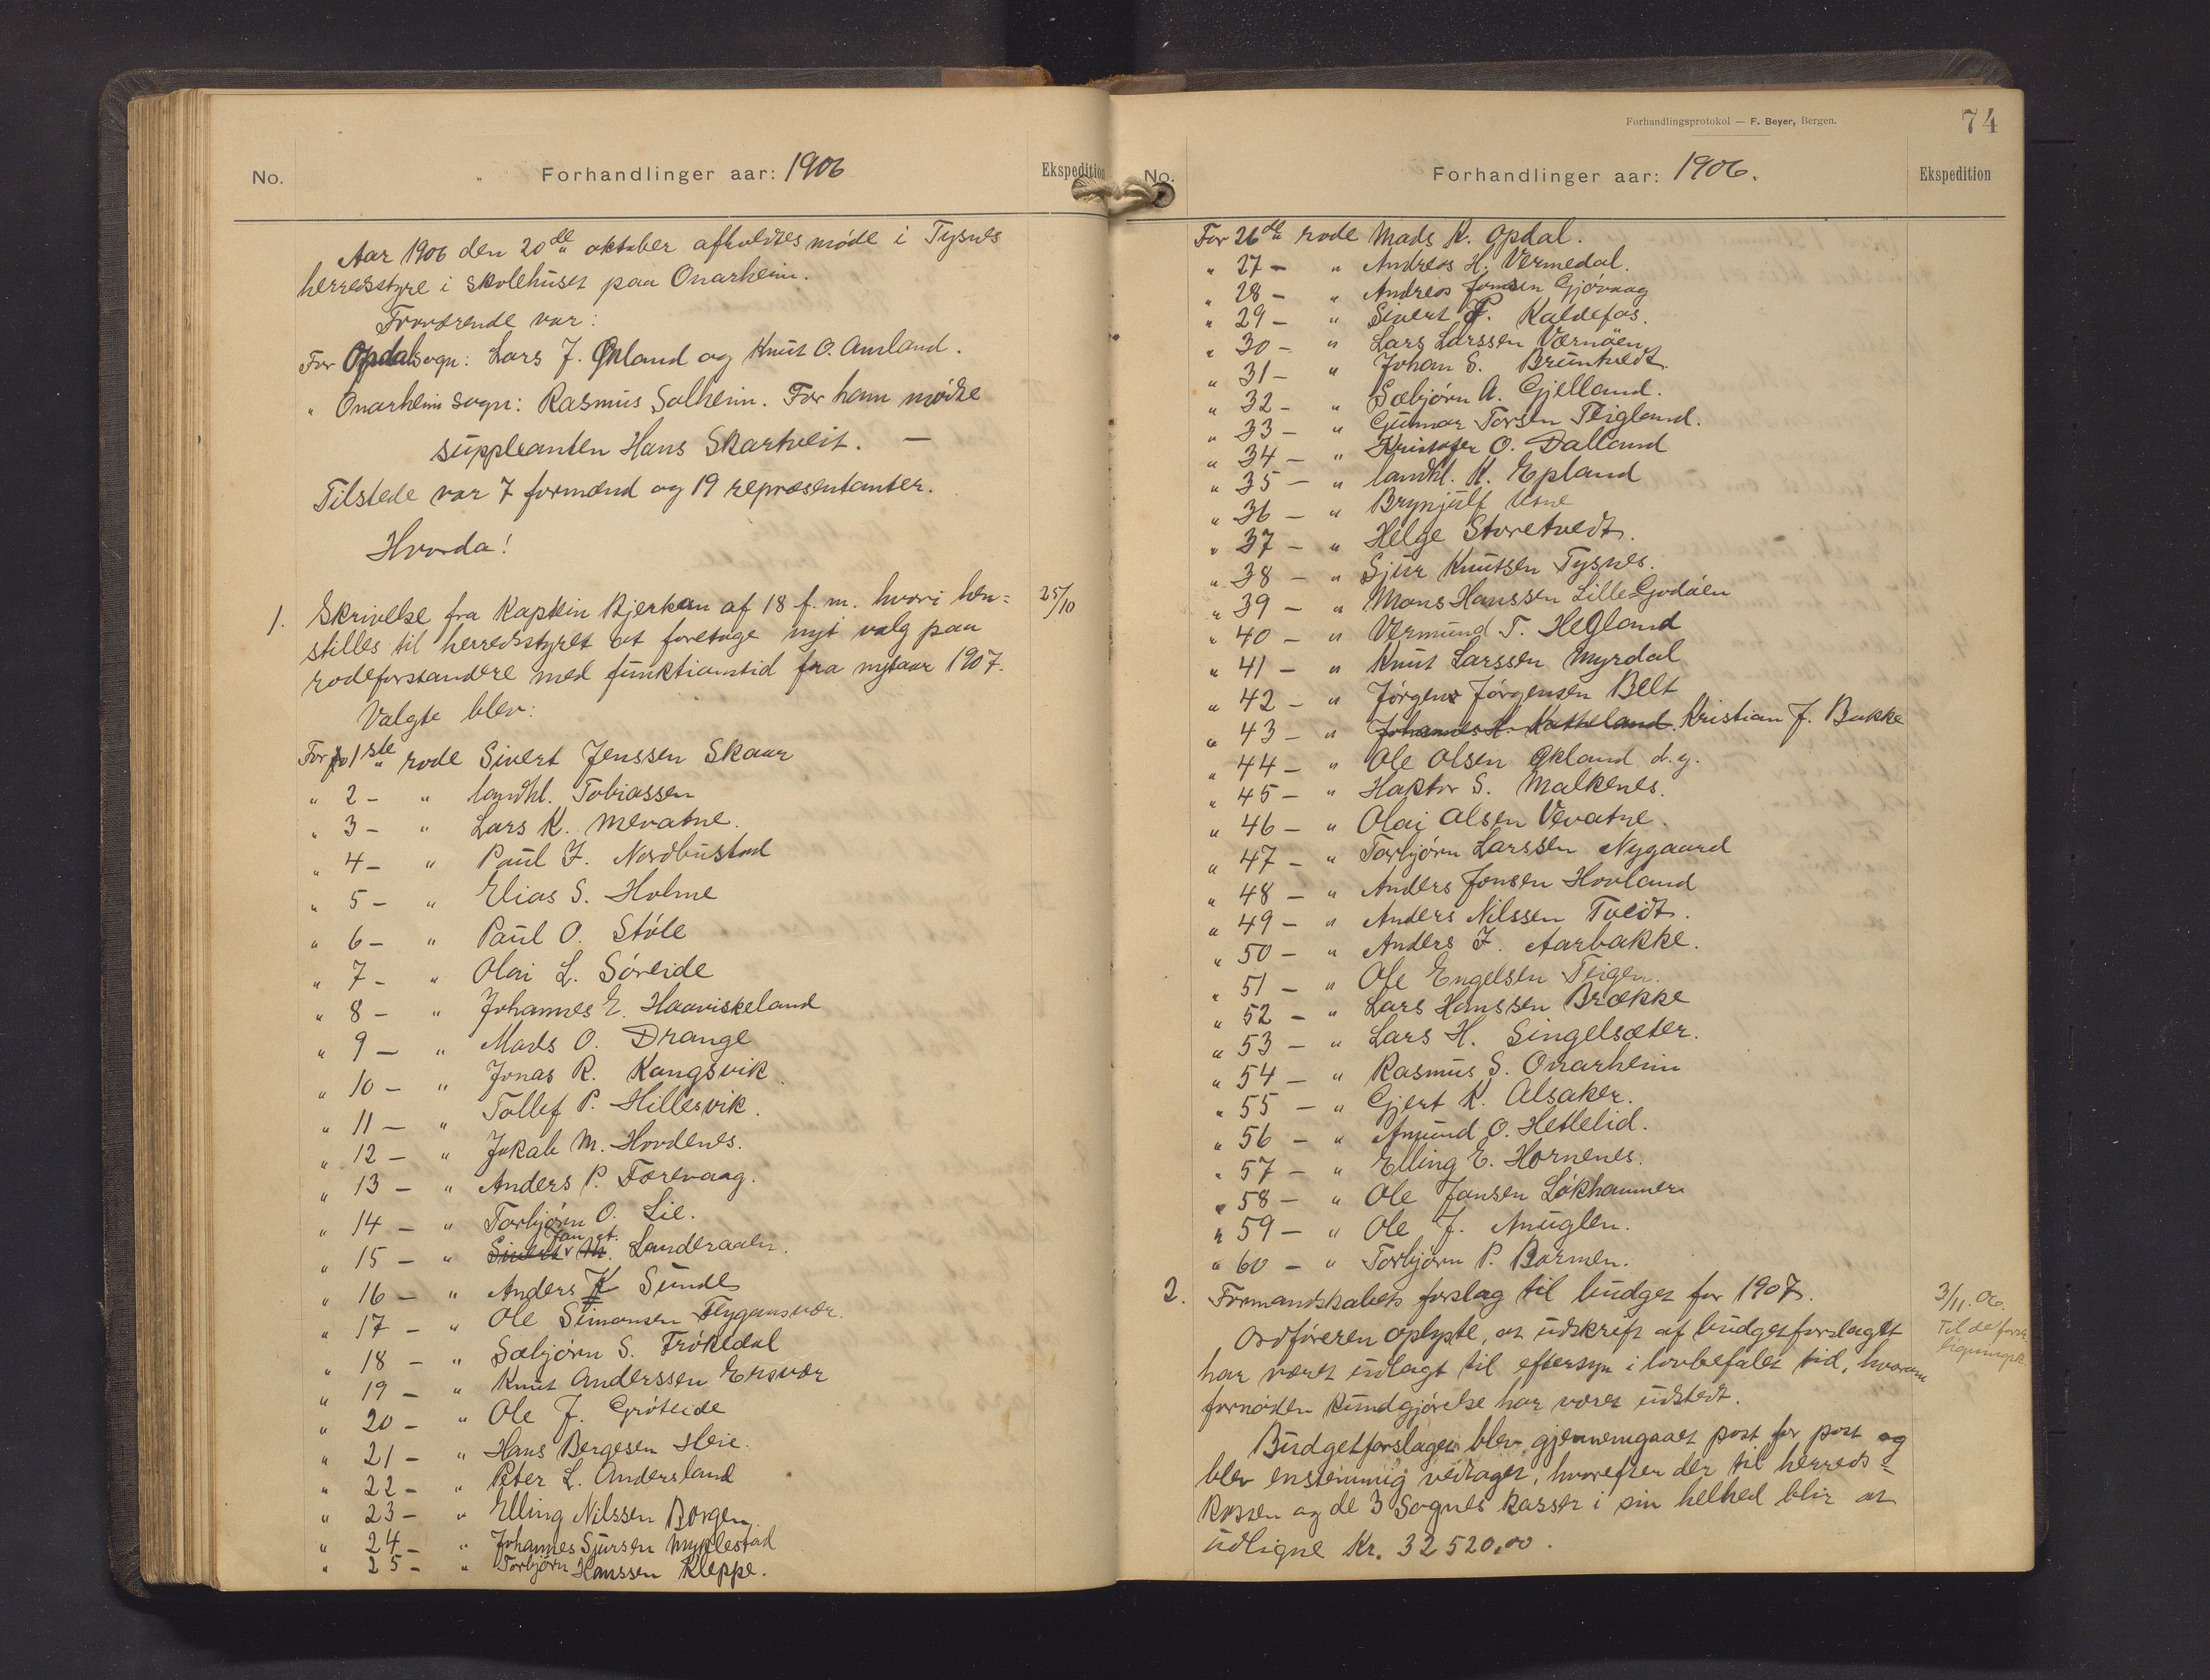 No. Forhandlinger aar: 1906 Ekspedition
Aar 1906 den 20de oktober afholdtes møde i Tysnes
herredsstyre i skolehuset paa Onarheim.
Fraværende var:
For Opdal sogn: Lars J. Økland og Knut O. Amland.
" Onarheim sogn: Rasmus Solheim. For ham mødte
suppleanten Hans Skartveit. —
Tilstede var 7 formænd og 19 repræsentanter.
Hvorda!
1. Skrivelse fra Kaptein Bjerkan af 18 f. m. hvori hen= 25/10
stilles til herredsstyret at foretage nyt valg paa
rodeforstandere med funktionstid fra nytaar 1907.
Valgte blev:
For 1ste rode Sivert Jenssen Skaar
" 2 - " landhl. Tobiassen
" 3 - " Lars K. Mevatne.
" 4 - " Paul J. Nordbustad
" 5 - " Elias S. Holme
" 6 - " Paul O. Støle
" 7 - " Olai L. Søreide
" 8 - " Johannes E. Haaviskeland
" 9 - " Mads O. Drange
" 10 - " Jonas R. Kangsvik
" 11 - " Tollef P. Hillesvik.
" 12 - " Jakob M. Hovdenes.
" 13 - " Anders P. Færevaag.
" 14 - " Torbjørn O. Lie.
" 15 - " Sivert Landeraalen.
" 16 - " Anders K Sunde
" 17 - " Ole Simonsen Flygansvær.
" 18 - " Sæbjørn S. Frøkedal
" 19 - " Knut Anderssen Ersvær
" 20 - " Ole J. Grøteide
" 21 - " Hans Bergesen Heie.
" 22 - " Peter L. Andersland
" 23 - " Elling Nilssen Borgen.
" 24 - " Johannes Sjursen Myklestad
" 25 - " Torbjørn Hanssen Kleppe.
Forhandlingsprotokol — F. Beyer, Bergen.
74
No. Forhandlinger aar: 1906. Ekspedition
For 26de rode Mads K. Opdal.
" 27 - " Andreas H. Vermedal.
" 28 - " Andreas Jonsen Gjøvaag
" 29 - " Sivert P. Kaldefos.
" 30 - " Lars Larssen Værnøen
" 31 - " Johan S. Bruntvedt.
" 32 - " Sæbjørn A. Gjelland.
" 33 - " Gunnar Torsen Teigland.
" 34 - " Kristofer O. Dalland
" 35 - " landhl. K. Epland
" 36 - " Brynjulf U
" 37 - " Helge Storetvedt.
" 38 - " Sjur Knutsen Tysnes.
" 39 - " Mons Hanssen Lille Godøen
" 40 - " Vermund T. Hegland
" 41 - " Knut Larssen Myrdal
" 42 - " Jørgen Jørgensen Belt
" 43 - " Johannes K. Katteland. Kristian J. Bakke
" 44 - " Ole Olsen Økland d. y.
" 45 - " Haktor S. Malkenes.
" 46 - " Olai Olsen Vevatne.
" 47 - " Torbjørn Larssen Nygaard
" 48 - " Anders Jonsen Hovland
" 49 - " Anders Nilssen Tveidt.
" 50 - " Anders J. Aarbakke.
" 51 - " Ole Engelsen Teigen.
" 52 - " Lars Hanssen Brække
" 53 - " Lars H. Singelsæter.
" 54 - " Rasmus S. Onarheim
" 55 - " Gjert K. Alsaker.
" 56 - " Amund O. Hetlelid.
" 57 - " Elling E. Hornenes.
" 58 - " Ole Jansen Løkhammer
" 59 - " Ole J. Anuglen.
" 60 - " Torbjørn P. Barmen.
2. Formandskabets forslag til budget for 1907. 3/11.06.
Ordføreren oplyste, at udskrift af budgetforslaget Til de forr.
har været udlagt til eftersyn i lovbefalet tid, hvorom ligningsk.
fornøden kundgjørelse har været udstedt.
Budgetforslaget blev gjennemgaaet post for post og
blev enstemmig vedtaget, hvorefter der til herreds=
kassen og de 3 Sognes kasser i sin helhed blir at
udligne Kr. 32520,00.